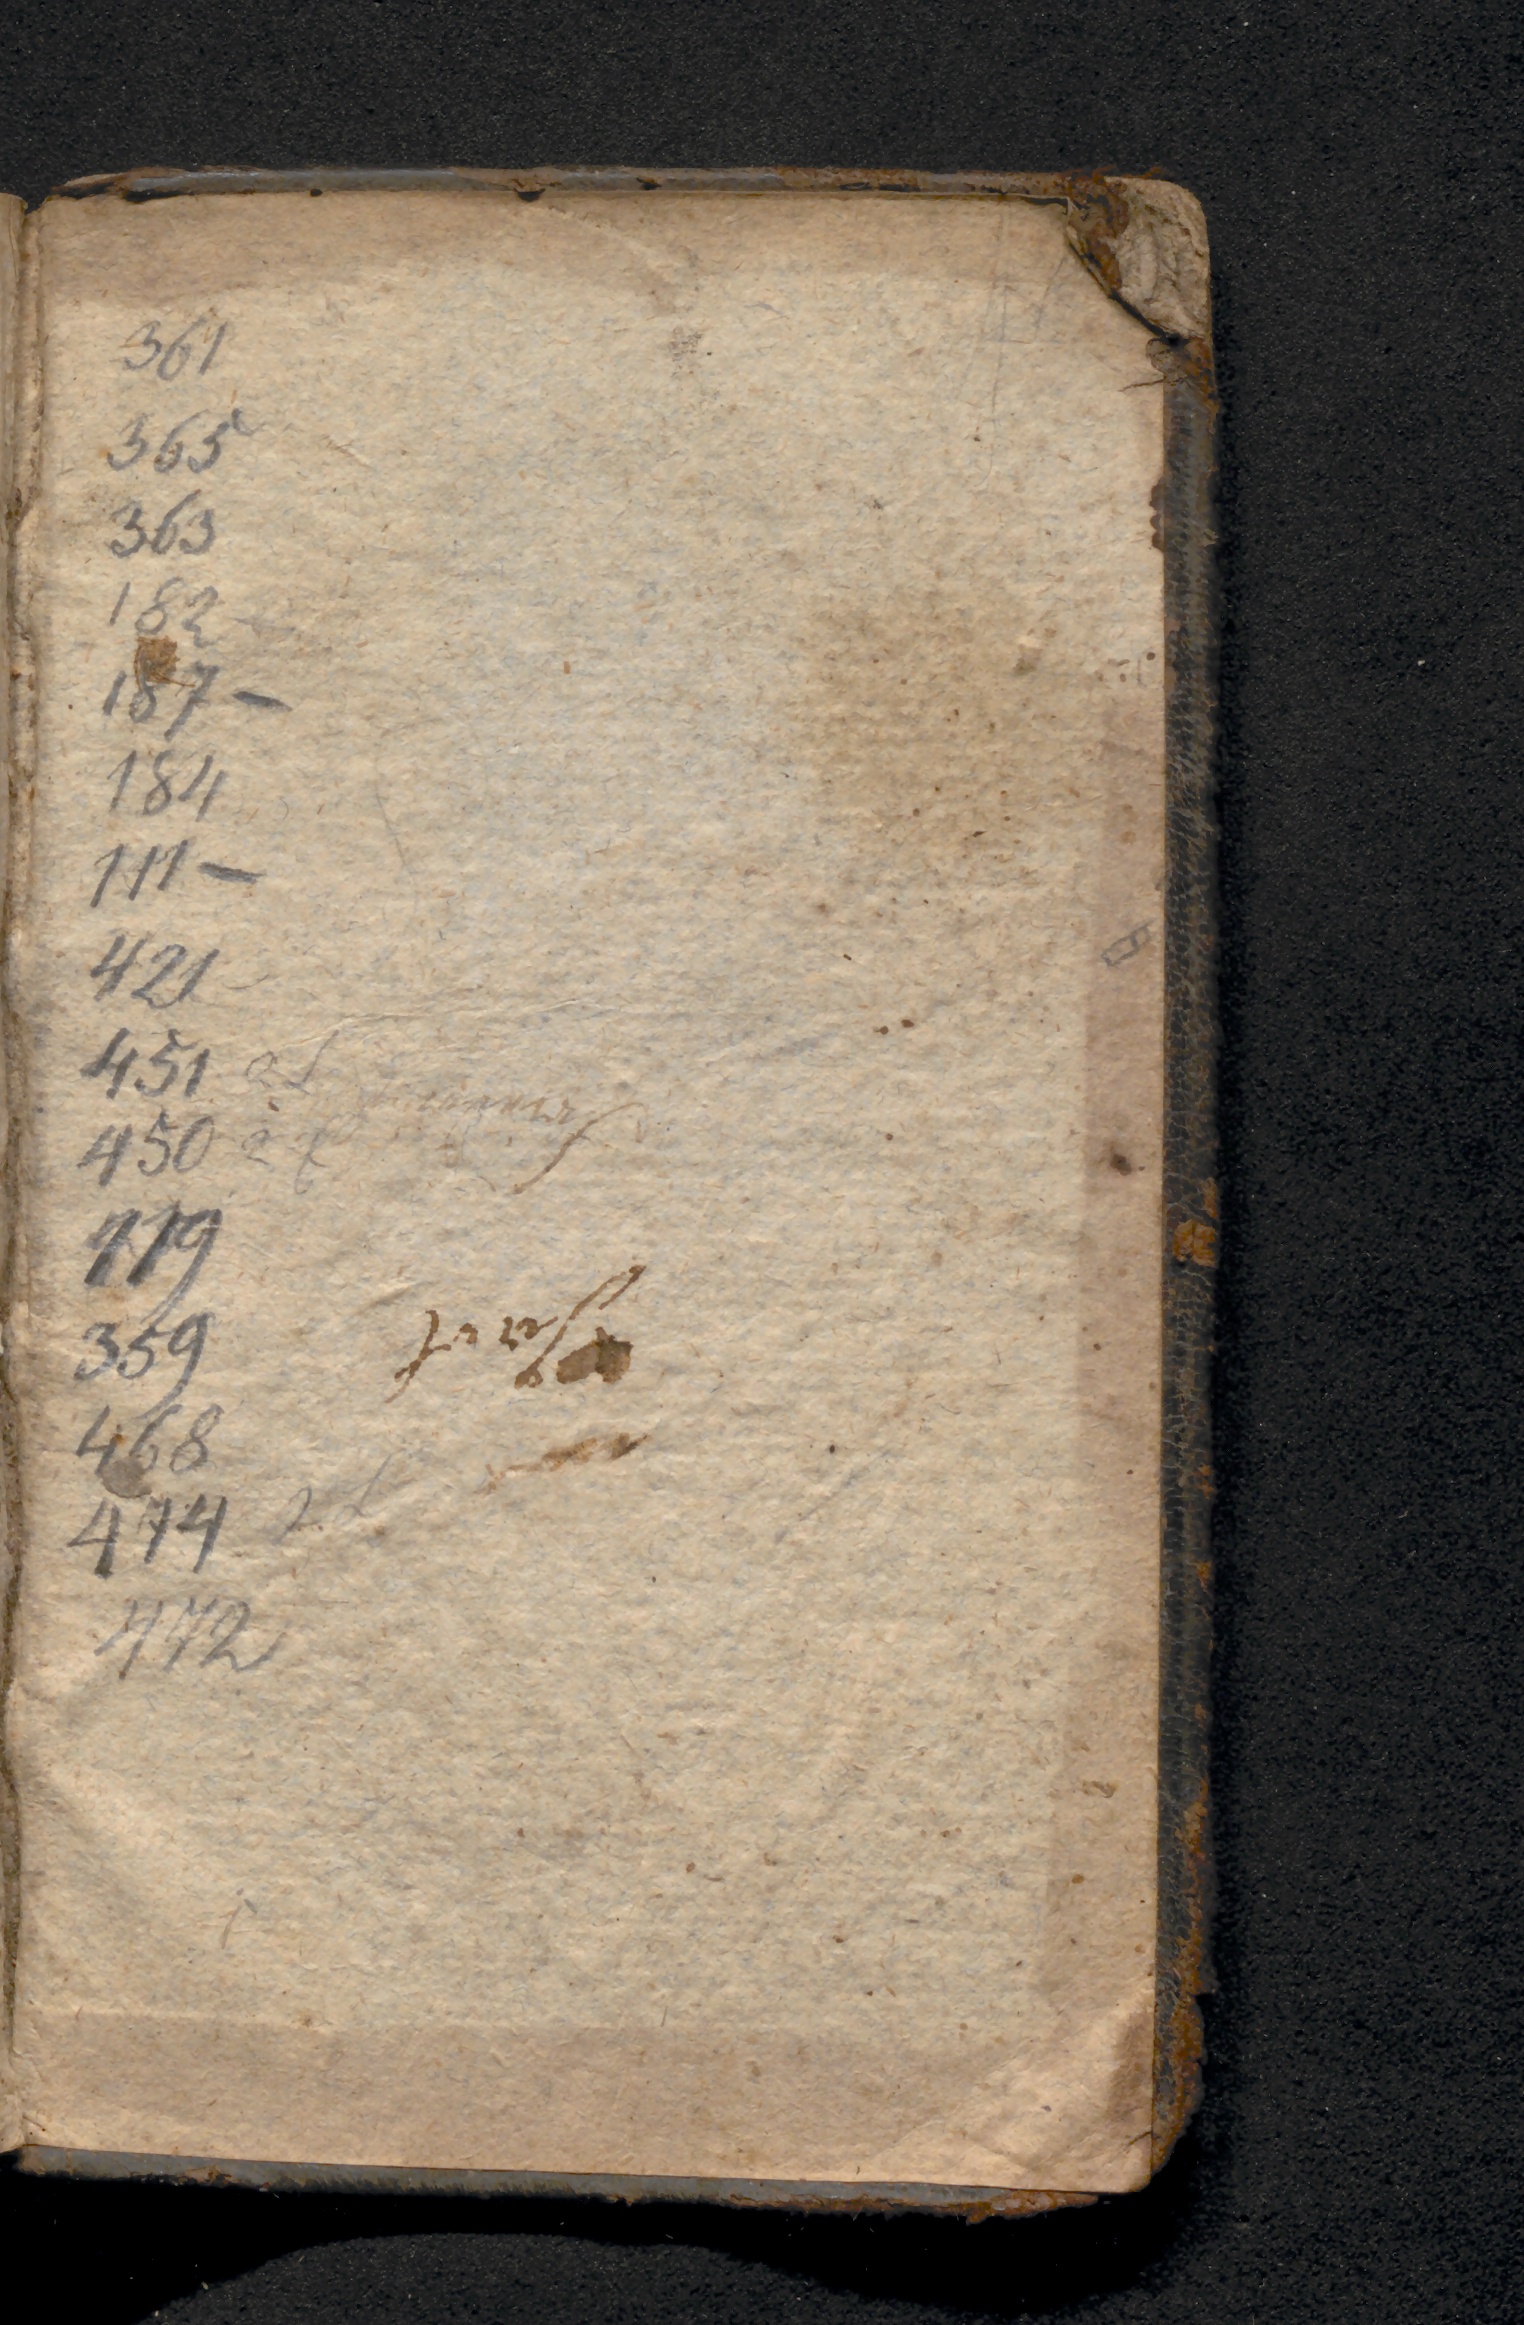 361
365
363
182 -
187 -
184
111 -
421
451
450
119
359
468
474
472